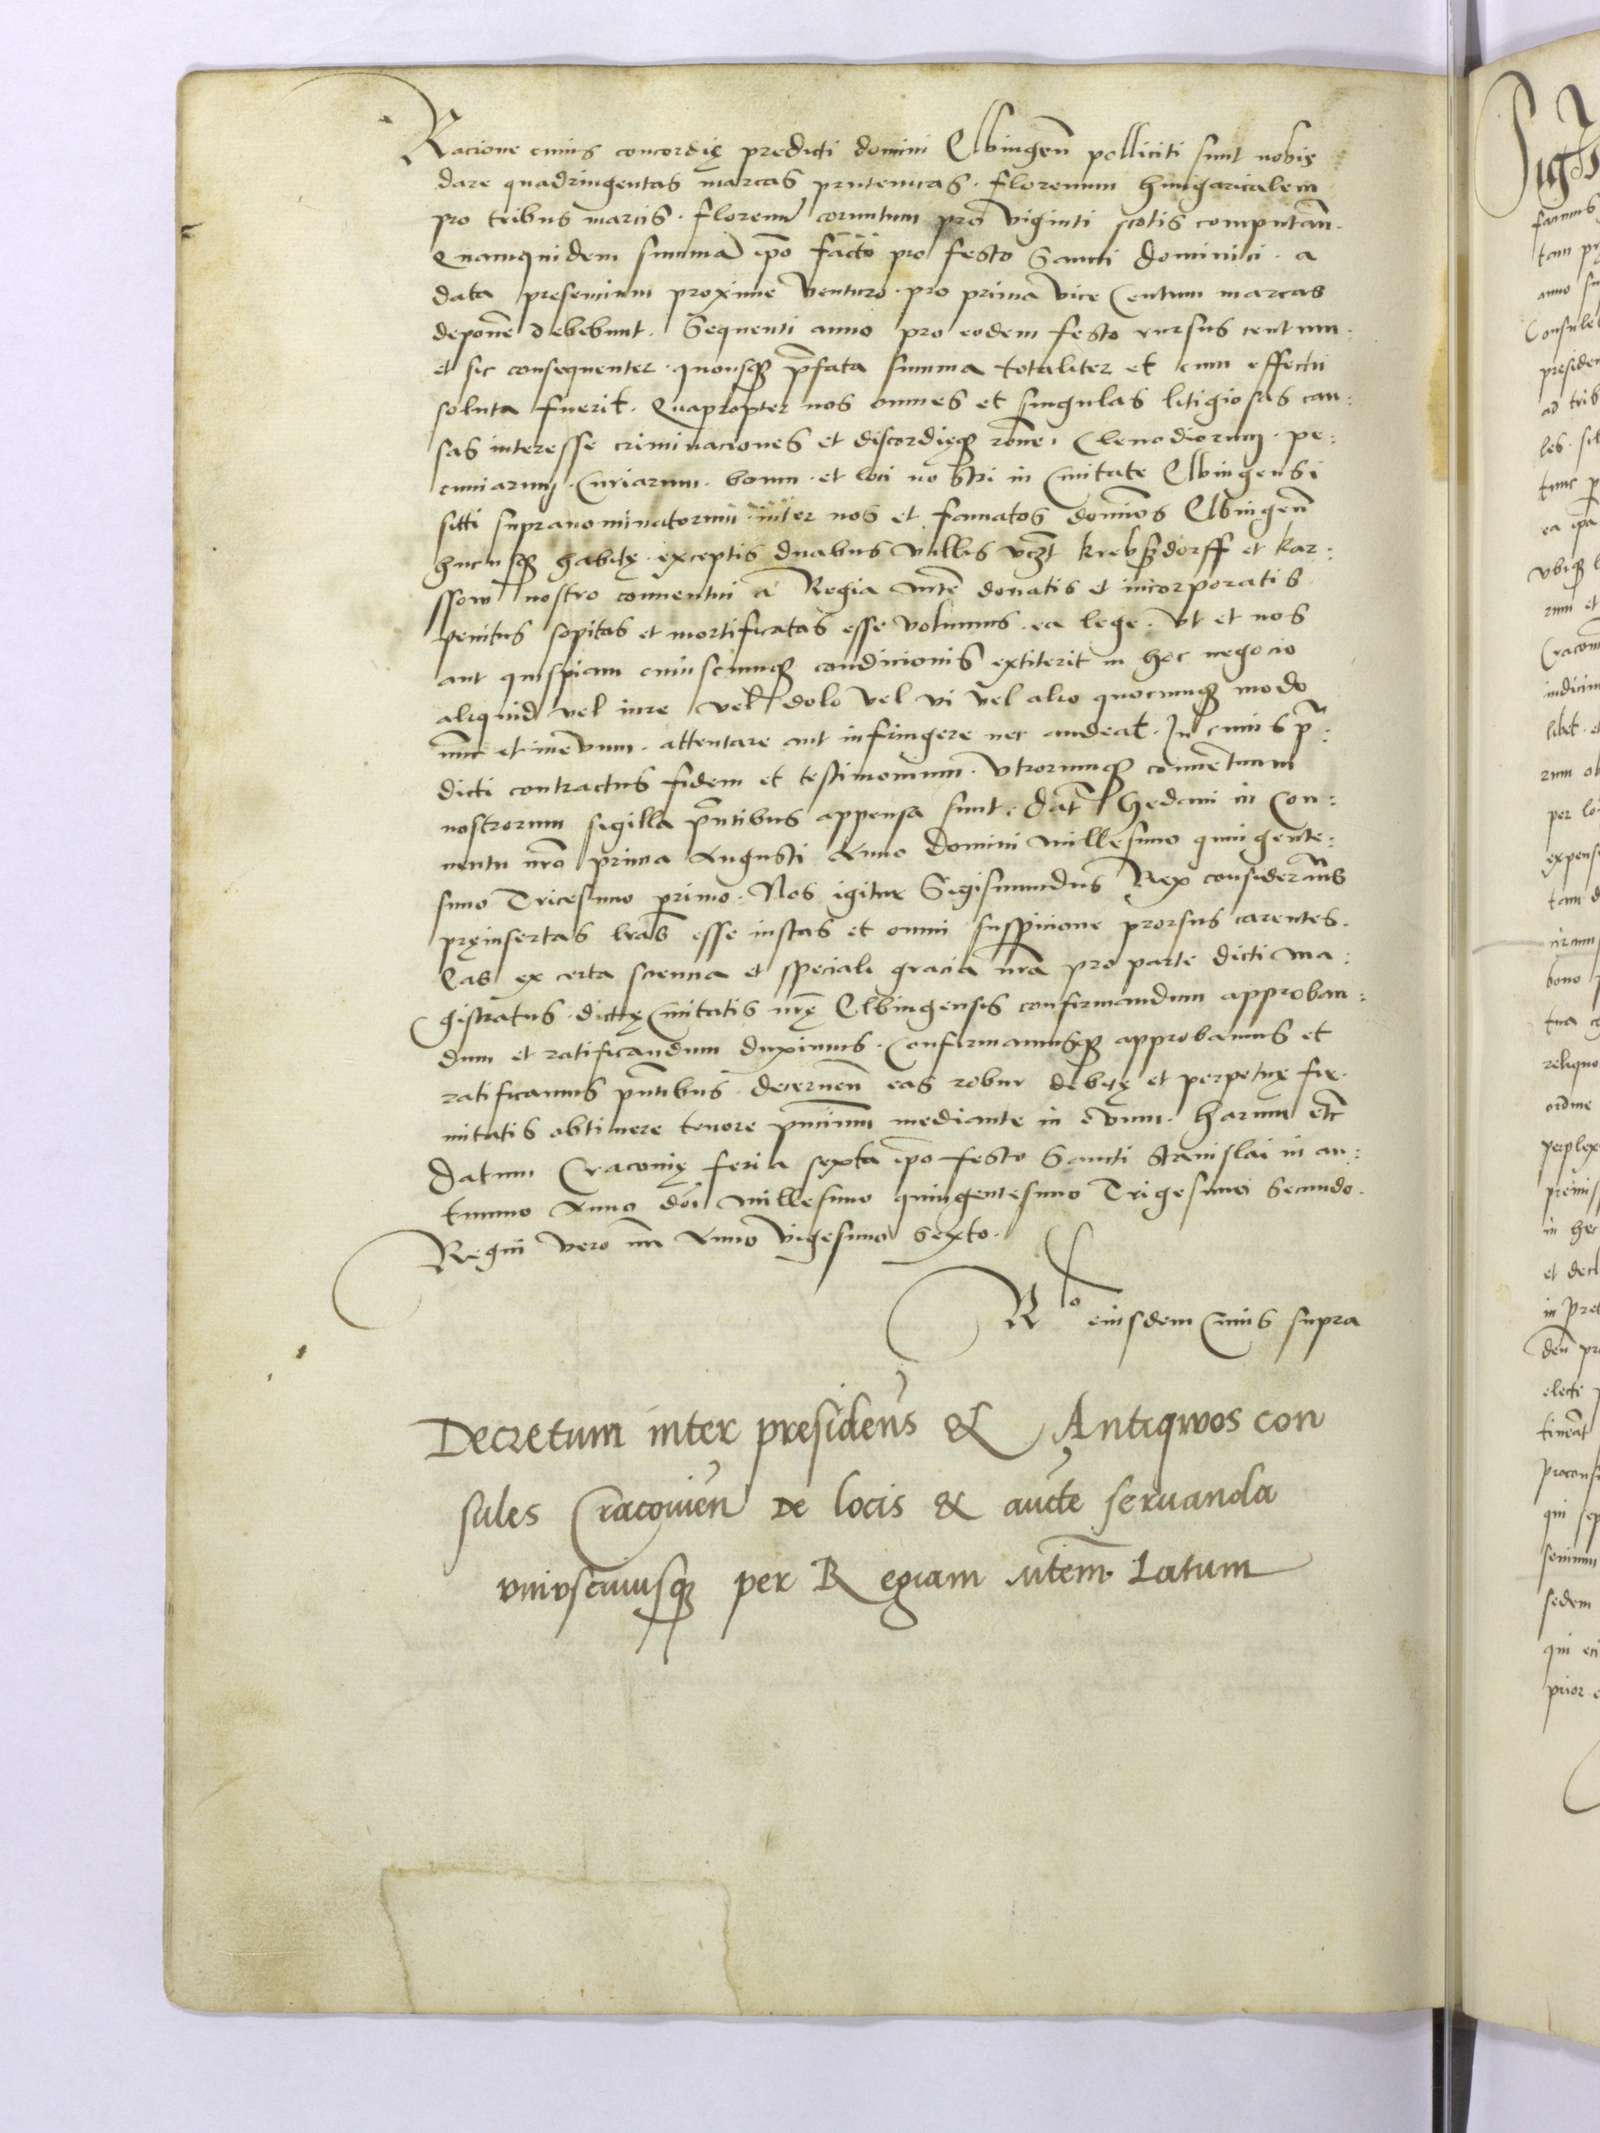 Racione cuius concordię predicti domini Elbingen̄ polliciti sunt nobis
dare quadringentas marcas prutenicas. florenum hungaricalem
pro tribus marcis. florenū coruntum pro viginti scotis computan̄.
Quamquidem summā ip̄o facto pro festo Sancti Dominici. a
data presencium proxime venturo. pro prima vice Centum marcas
depone debebunt. Sequenti anno pro eodem festo rursus centum.
et sic consequenter. quousq₃ p̄fata summa totaliter et cum effectu
soluta fuerit. Quapropter nos omnes et singulas litigiosas cau:
sas interesse criminaciones et discordięq₃ rōne. Clenodiorum. pe:
cuniarum. Curiarum. bonn. et loci nostri in Ciuitate Elbingensi
sitti supranominatorum inter nos et famatos domīos Elbingen̄
hucusq₃ habitę. exceptis duabus villis vcz̄t krebszdorff et kar:
ssow nostro conuentui a Regia mte donatis et incorporatis
penitus sopitas et mortificatas esse volumus. ea lege. vt et nos
aut quispiam cuiuscumq₃ condicionis extiterit in hoc negocio
aliquid vel iure vel dolo vel vi vel alio quocumq₃ modo
nunc et in ęvum. attentare aut infringere nec audeat. In cuius p̄:
dicti contractus fidem et testimonium. vtrorumq₃ conuētuum
nostrorum sigilla p̄ntibus appensa sunt. Dat̄ Hedani in Con:
uentu nr̄o prima Augusti Anno Domini millesimo quingente:
simo Tricesimo primo. Nos igitur Sigismundus Rex considerans
pręinsertas lr̄as esse iustas et omni suspicione prorsus carentes.
Eas ex certa sciencia et speciali gracia nr̄a pro parte dicti ma:
gistratus. dictę Ciuitatis nr̄ę Elbingensis confirmandum approban:
dum et ratificandum duximus. Confirmamusq₃ approbamus et
ratificamus p̄ntibus. decernen̄ eas robur debitę et perpetuę fir.
mitatis obtinere tenore p̄ncium mediante in ęvum. Harum etc̄
Datum Cracovię feria sexta ip̄o festo Sancti Stanislai in au:
tumno Anno dōi Millesimo quingentesimo Trigesimo Secundo.
Regni vero nr̄i Anno vigesimo sexto.
Rᵒ eiusdem cuius supra
Decretum inter presidens & Antiqvos con
sules Cracovien̄ De locis & aucte seruanda
vnivscuiusq₃ per Regiam mtem Latum